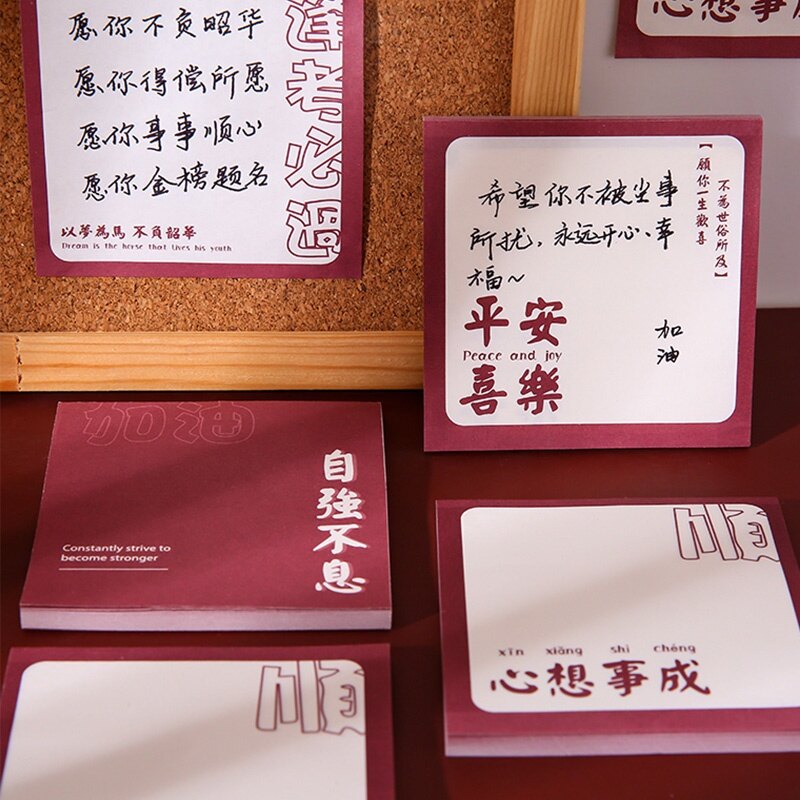 愿你不负昭华
愿你得偿所愿
愿你事事顺心
愿你金榜题名
逢考必過
以夢為馬 不負韶華
Dream is the horse that lives his youth
心想事成
【願你一生歡喜
不為世俗所及】
希望你不被尘事
所扰，永远开心、幸
福~
加
油
平安
Peace and joy
喜樂
加油
自強不息
Constantly strive to
become stronger
順
xīn xiǎng shì chéng
心想事成
順